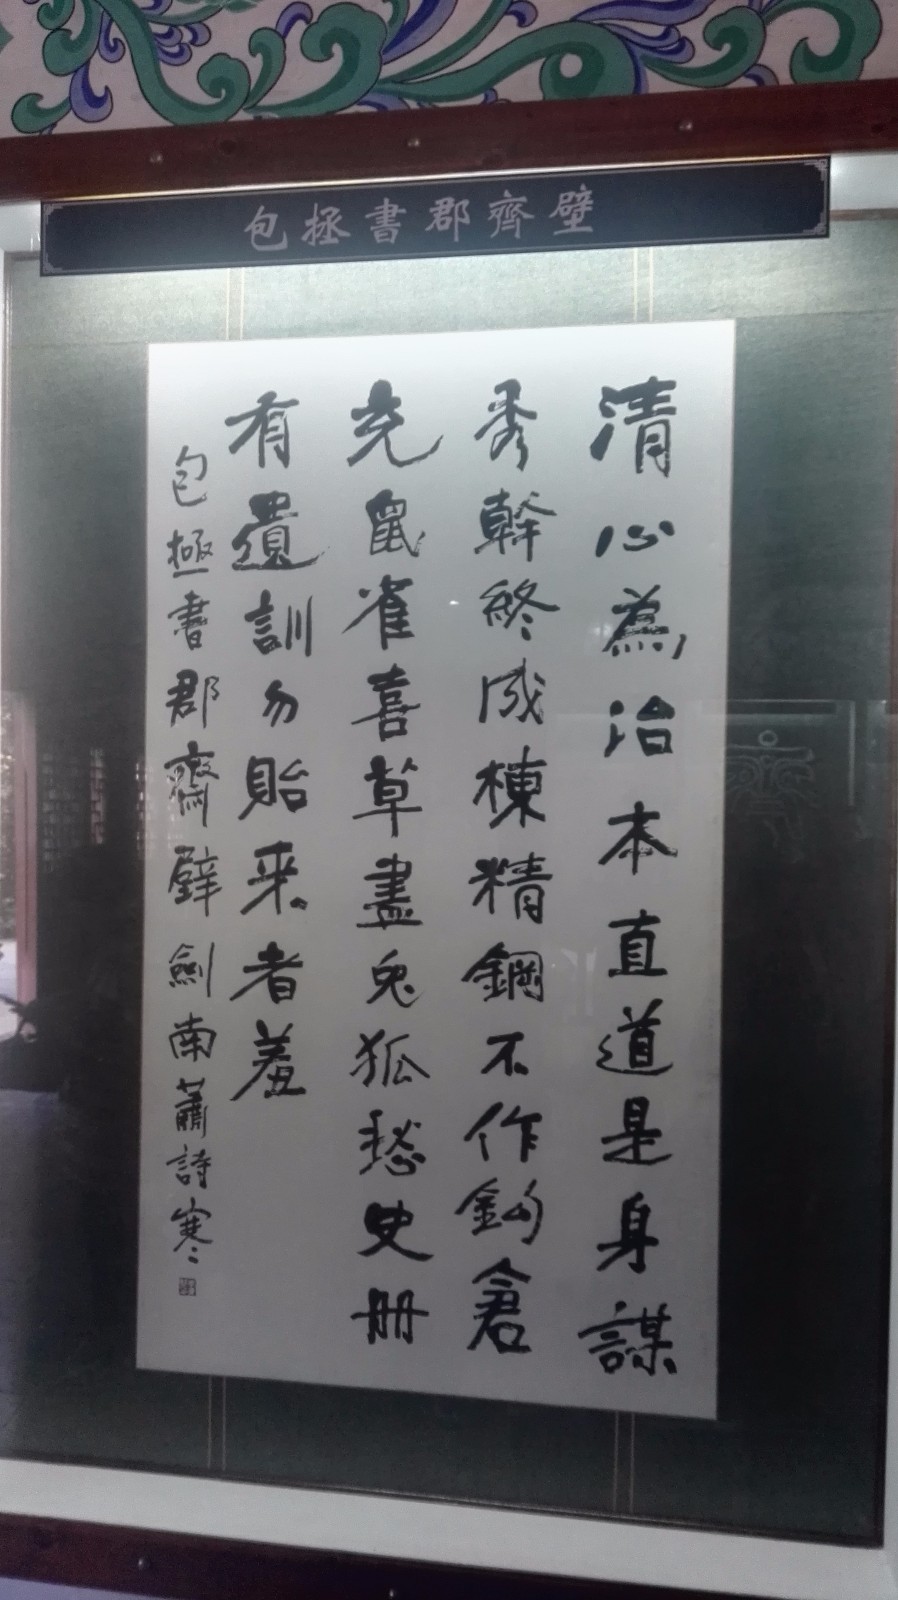 包拯書郡齊壁
清心為治本直道是身謀
秀幹終成棟精鋼不作鈎倉
充鼠雀喜草盡兔狐愁史册
有遺訓勿貽来者羞
包拯書郡齋壁 劍南蕭詩寒